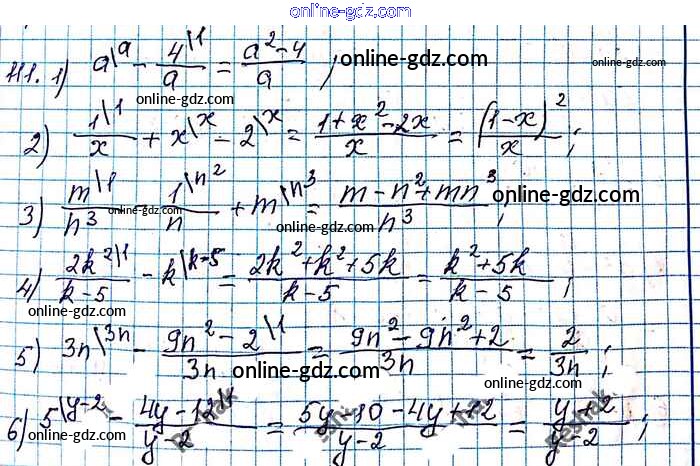 online-gdz.com
111. 1) a\a - 4\1/a = a²-4/a ; online-gdz.com
online-gdz.com
2) 1\1/x + x\x - 2\x = 1+x²-2x/x = (1-x)²/x ;
online-gdz.com online-gdz.com
3) m\1/n³ - 1\n²/n + m\n³ = m-n²+mn³/n³ ; online-gdz.com
online-gdz.com
online-gdz.com
4) 2k²\1/k-5 - k\k-5 = 2k²+k²+5k/k-5 = k²+5k/k-5 ;
online-gdz.com online-gdz.com
5) 3n\3n - 9n²-2\1/3n = 9n²-9n²+2/3n = 2/3n ;
online-gdz.com online-gdz.com
6) 5\y-2 - 4y-12\1/y-2 = 5y-10-4y+12/y-2 = y+2/y-2 ;
online-gdz.com